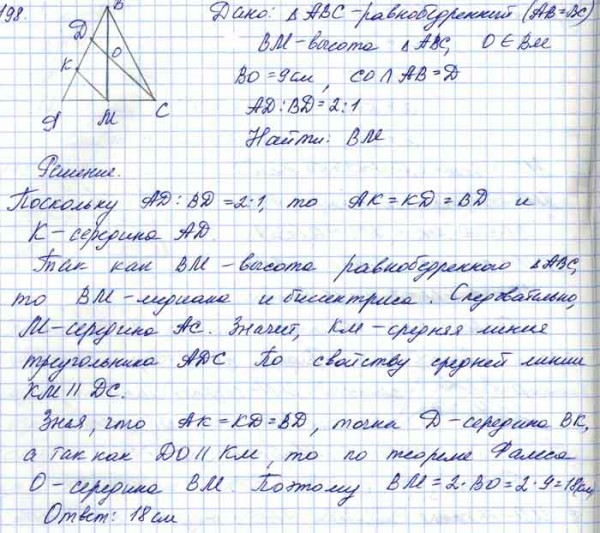 198.
Дано: △ABC - равнобедренный (AB=BC)
BM - высота △ABC, O ∈ BM
BO = 9 см, CO ∩ AB = D
AD : BD = 2:1
Найти: BM
B
D
O
K
A
M
C
Решение.
Поскольку AD : BD = 2:1, то AK = KD = BD и
K - середина AD.
Так как BM - высота равнобедренного △ABC,
то BM - медиана и биссектриса. Следовательно,
M - середина AC. Значит, KM - средняя линия
треугольника ADC. По свойству средней линии
KM || DC.
Зная, что AK = KD = BD, точка D - середина BK,
а так как DO || KM, то по теореме Фалеса
O - середина BM. Поэтому BM = 2·BO = 2·9 = 18 см
Ответ: 18 см